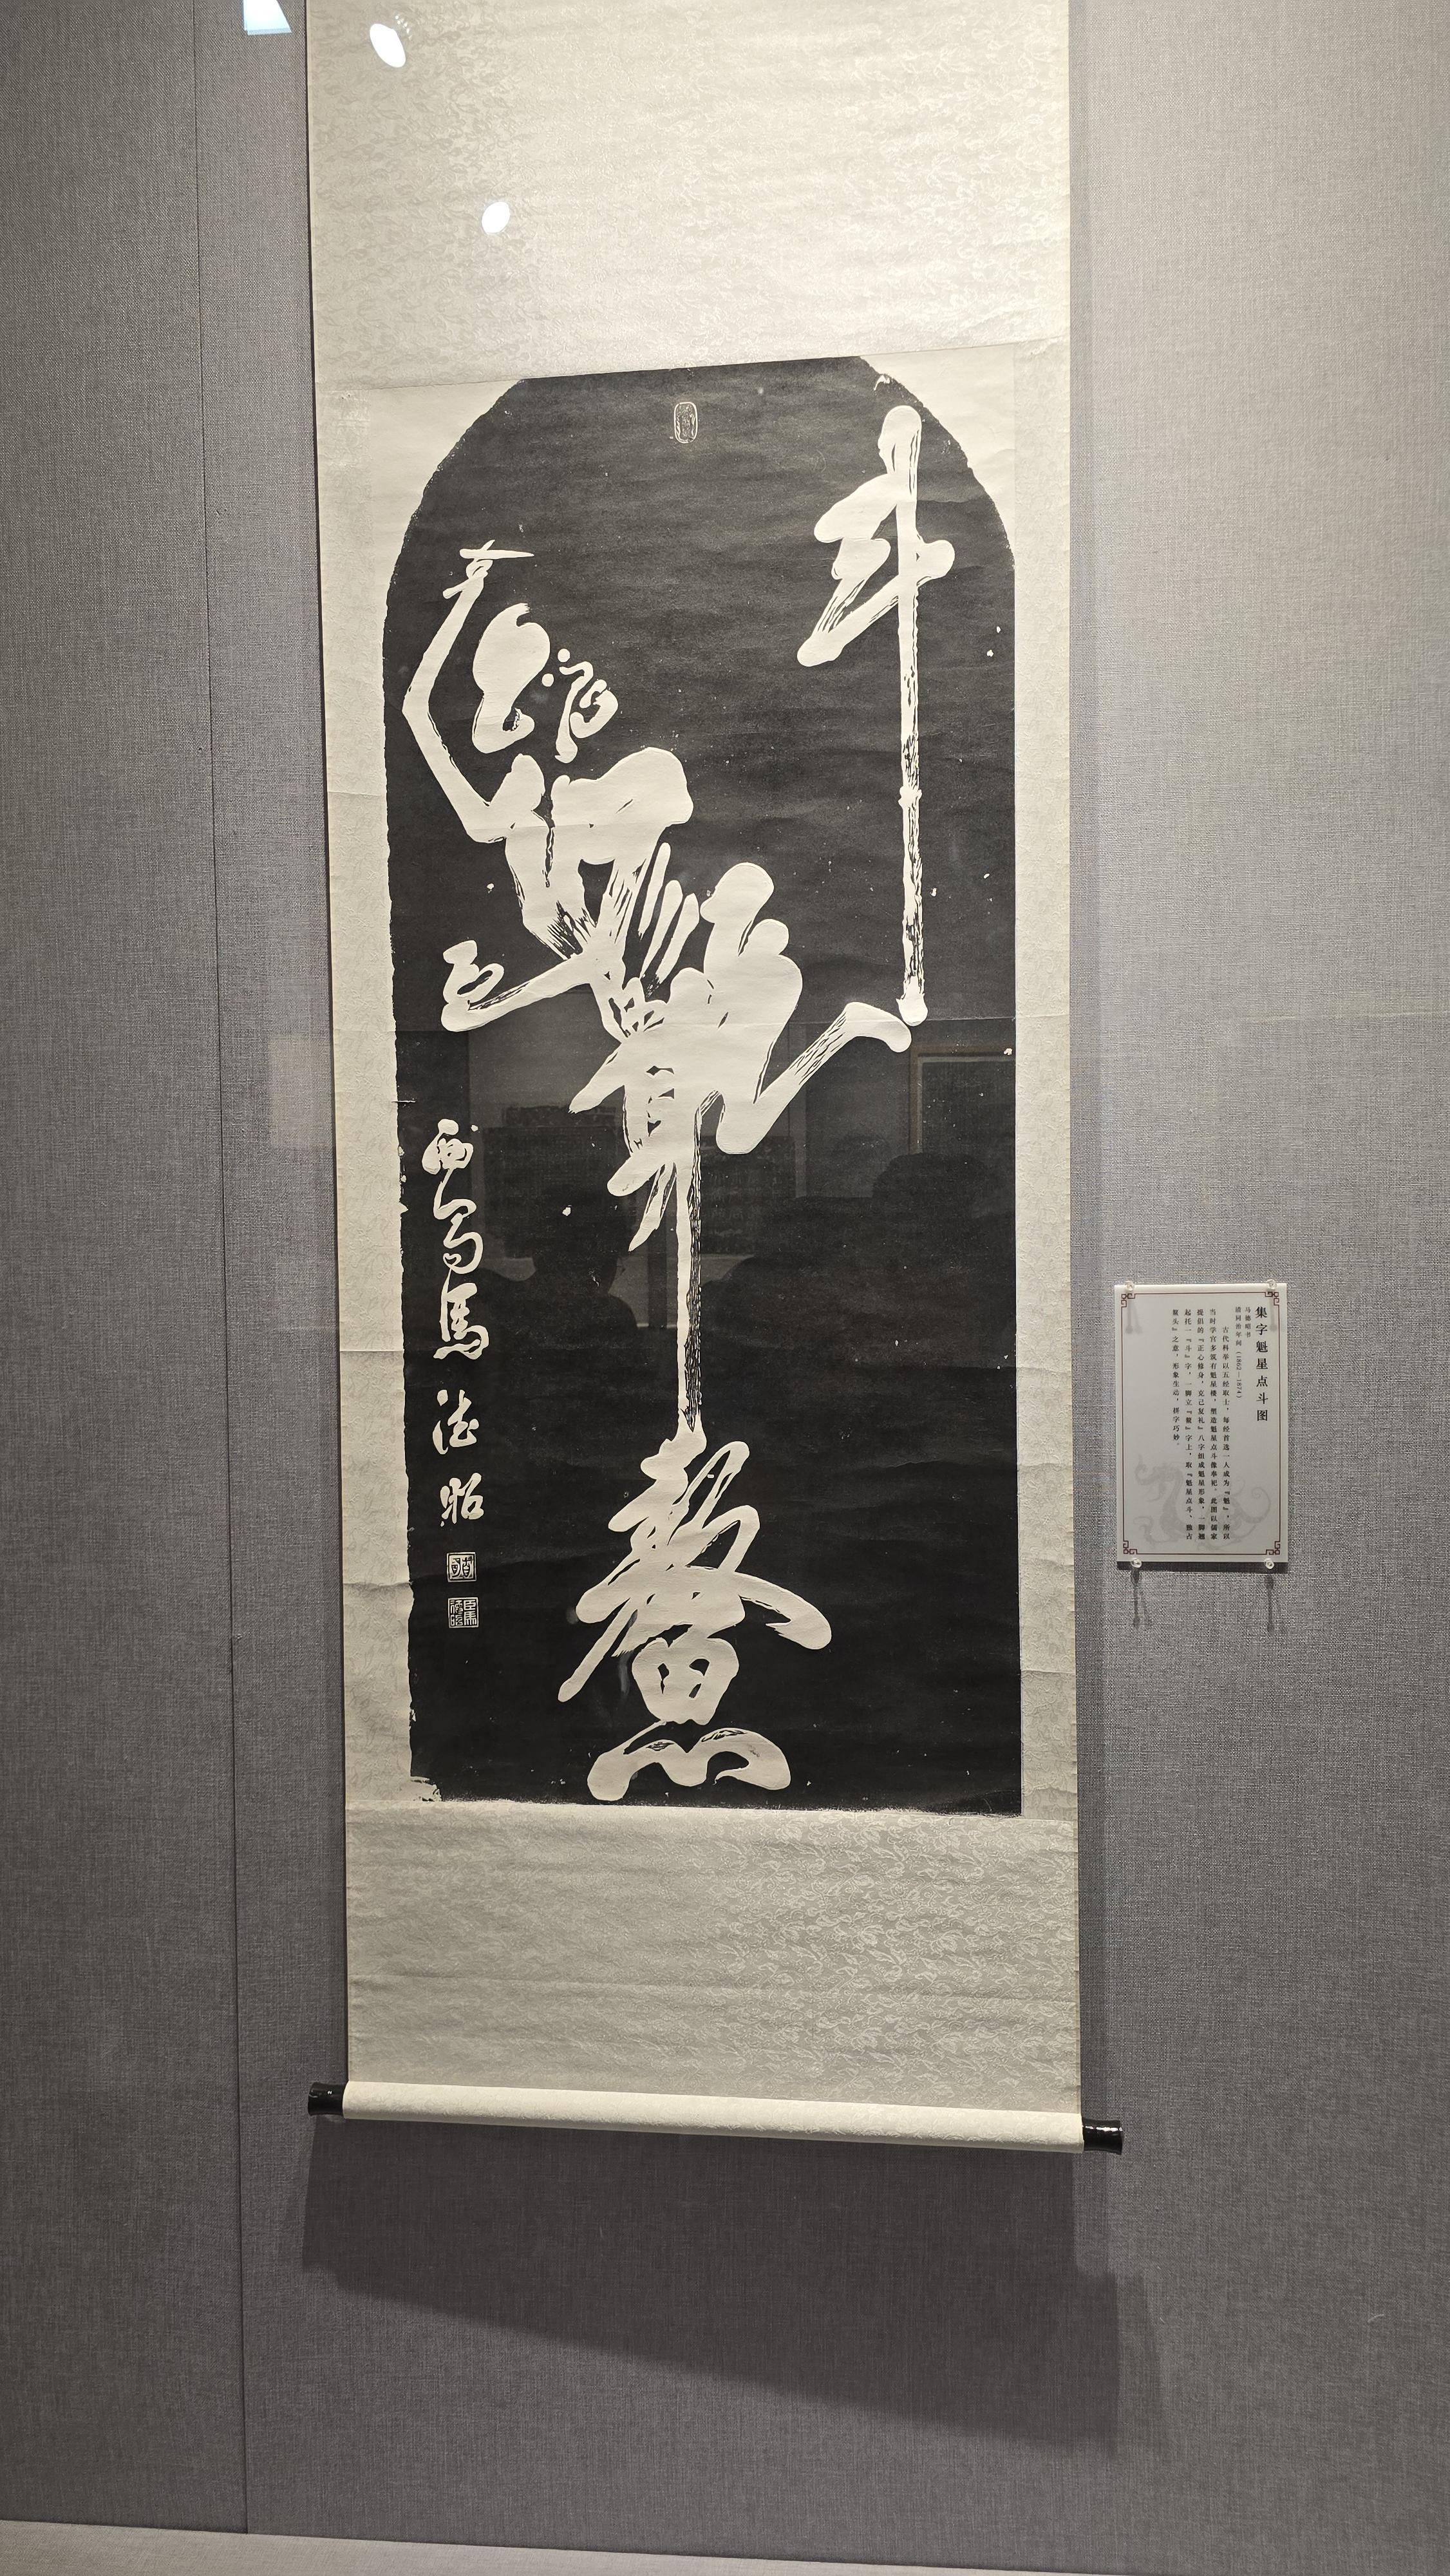 斗
鰲
西蜀馬德昭
集字魁星点斗图
马德昭书
清同治年间（1862—1874）
古代科举以五经取士，每经首选一人成为『魁』，所以
当时学宫多筑有魁星楼，塑造魁星点斗像奉祀。此图以儒家
提倡的『正心修身，克己复礼』八字组成魁星形象，一脚翘
起托一『斗』字，一脚立『鳌』字上，取『魁星点斗，独占
鳌头』之意，形象生动，拼字巧妙。